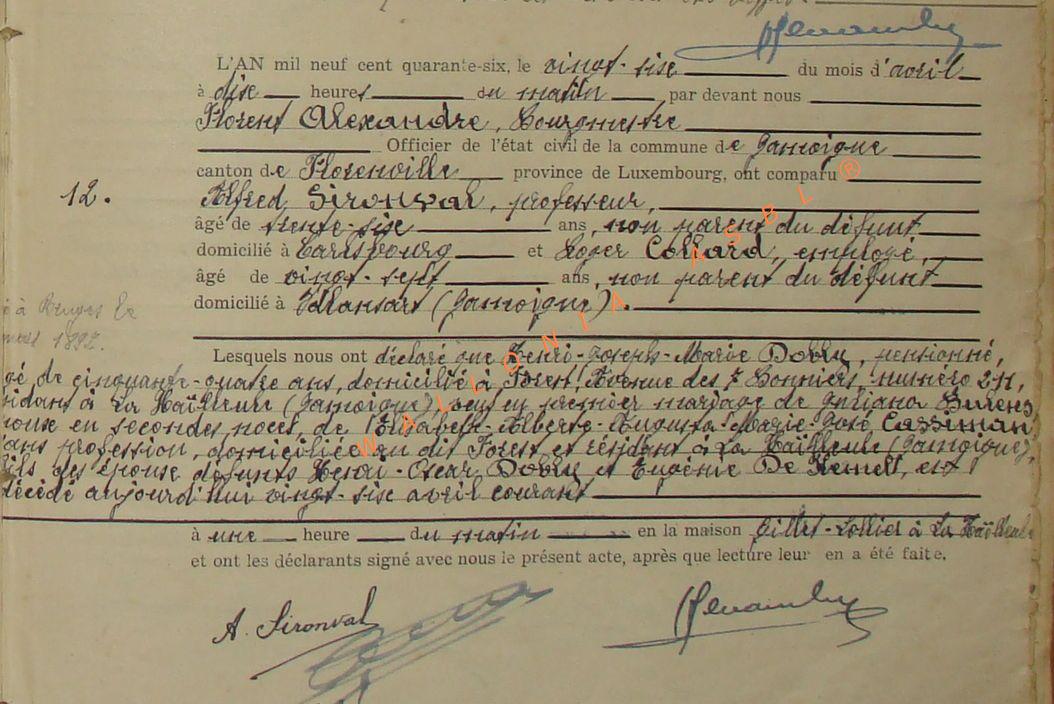 L'AN mil neuf cent quarante-six, le vingt-six du mois d'avril
à dix heures du matin par devant nous
Florent Alexandre, Bourgmestre
Officier de l'état civil de la commune de Jamoigne
canton de Florenville province de Luxembourg, ont comparu
12. Alfred Sironval, professeur,
âgé de trente-six ans, non parent du défunt
domicilié à Carlsbourg et Roger Collard, employé,
âgé de vingt-sept ans, non parent du défunt
domicilié à Valansart (Jamoigne).
à Bruges le
1892.
Lesquels nous ont déclaré que Henri-Joseph-Marie Dobbly, pensionné,
gé de cinquante-quatre ans, domicilié à Forest, Avenue des 7 Bonniers, numéro 211,
sidant à La Haïlleule (Jamoigne), veuf en premier mariage de Juliana
poux en secondes noces, de Elisabeth-Alberte-Augusta-Marie-José, Cassiman,
ans profession, domiciliée au dit Forest et résidant à La Haïlleule (Jamoigne),
fils des époux défunts Henri-Oscar Dobbly et Eugénie De, est
décédé aujourd'hui vingt-six avril courant
à une heure du matin en la maison Gillet-Collied à La Haïlleule
et ont les déclarants signé avec nous le présent acte, après que lecture leur en a été faite.
A. Sironval
WALLONIA ASBL ®